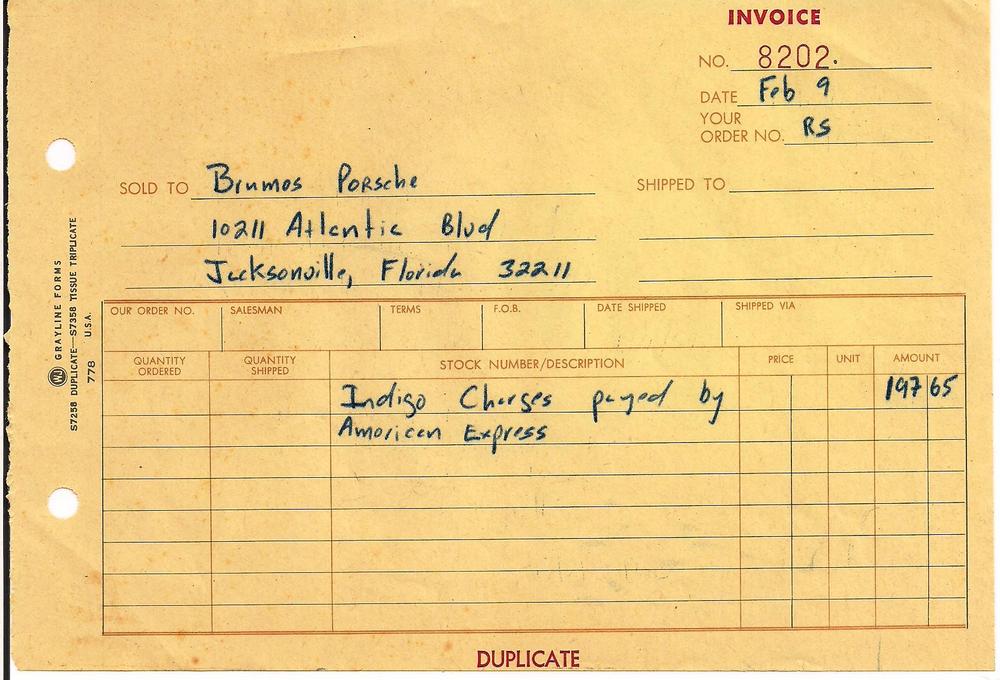 INVOICE
NO. 8202.
DATE Feb 9
YOUR
ORDER NO. RS
SOLD TO Brumos Porsche SHIPPED TO
10211 Atlantic Blvd
Jacksonville, Florida 32211
WJ GRAYLINE FORMS
S7258 DUPLICATE—S7358 TISSUE TRIPLICATE
778 U.S.A.
OUR ORDER NO. SALESMAN TERMS F.O.B. DATE SHIPPED SHIPPED VIA
QUANTITY ORDERED QUANTITY SHIPPED STOCK NUMBER/DESCRIPTION PRICE UNIT AMOUNT
Indigo Charges payed by 197 65
American Express
DUPLICATE